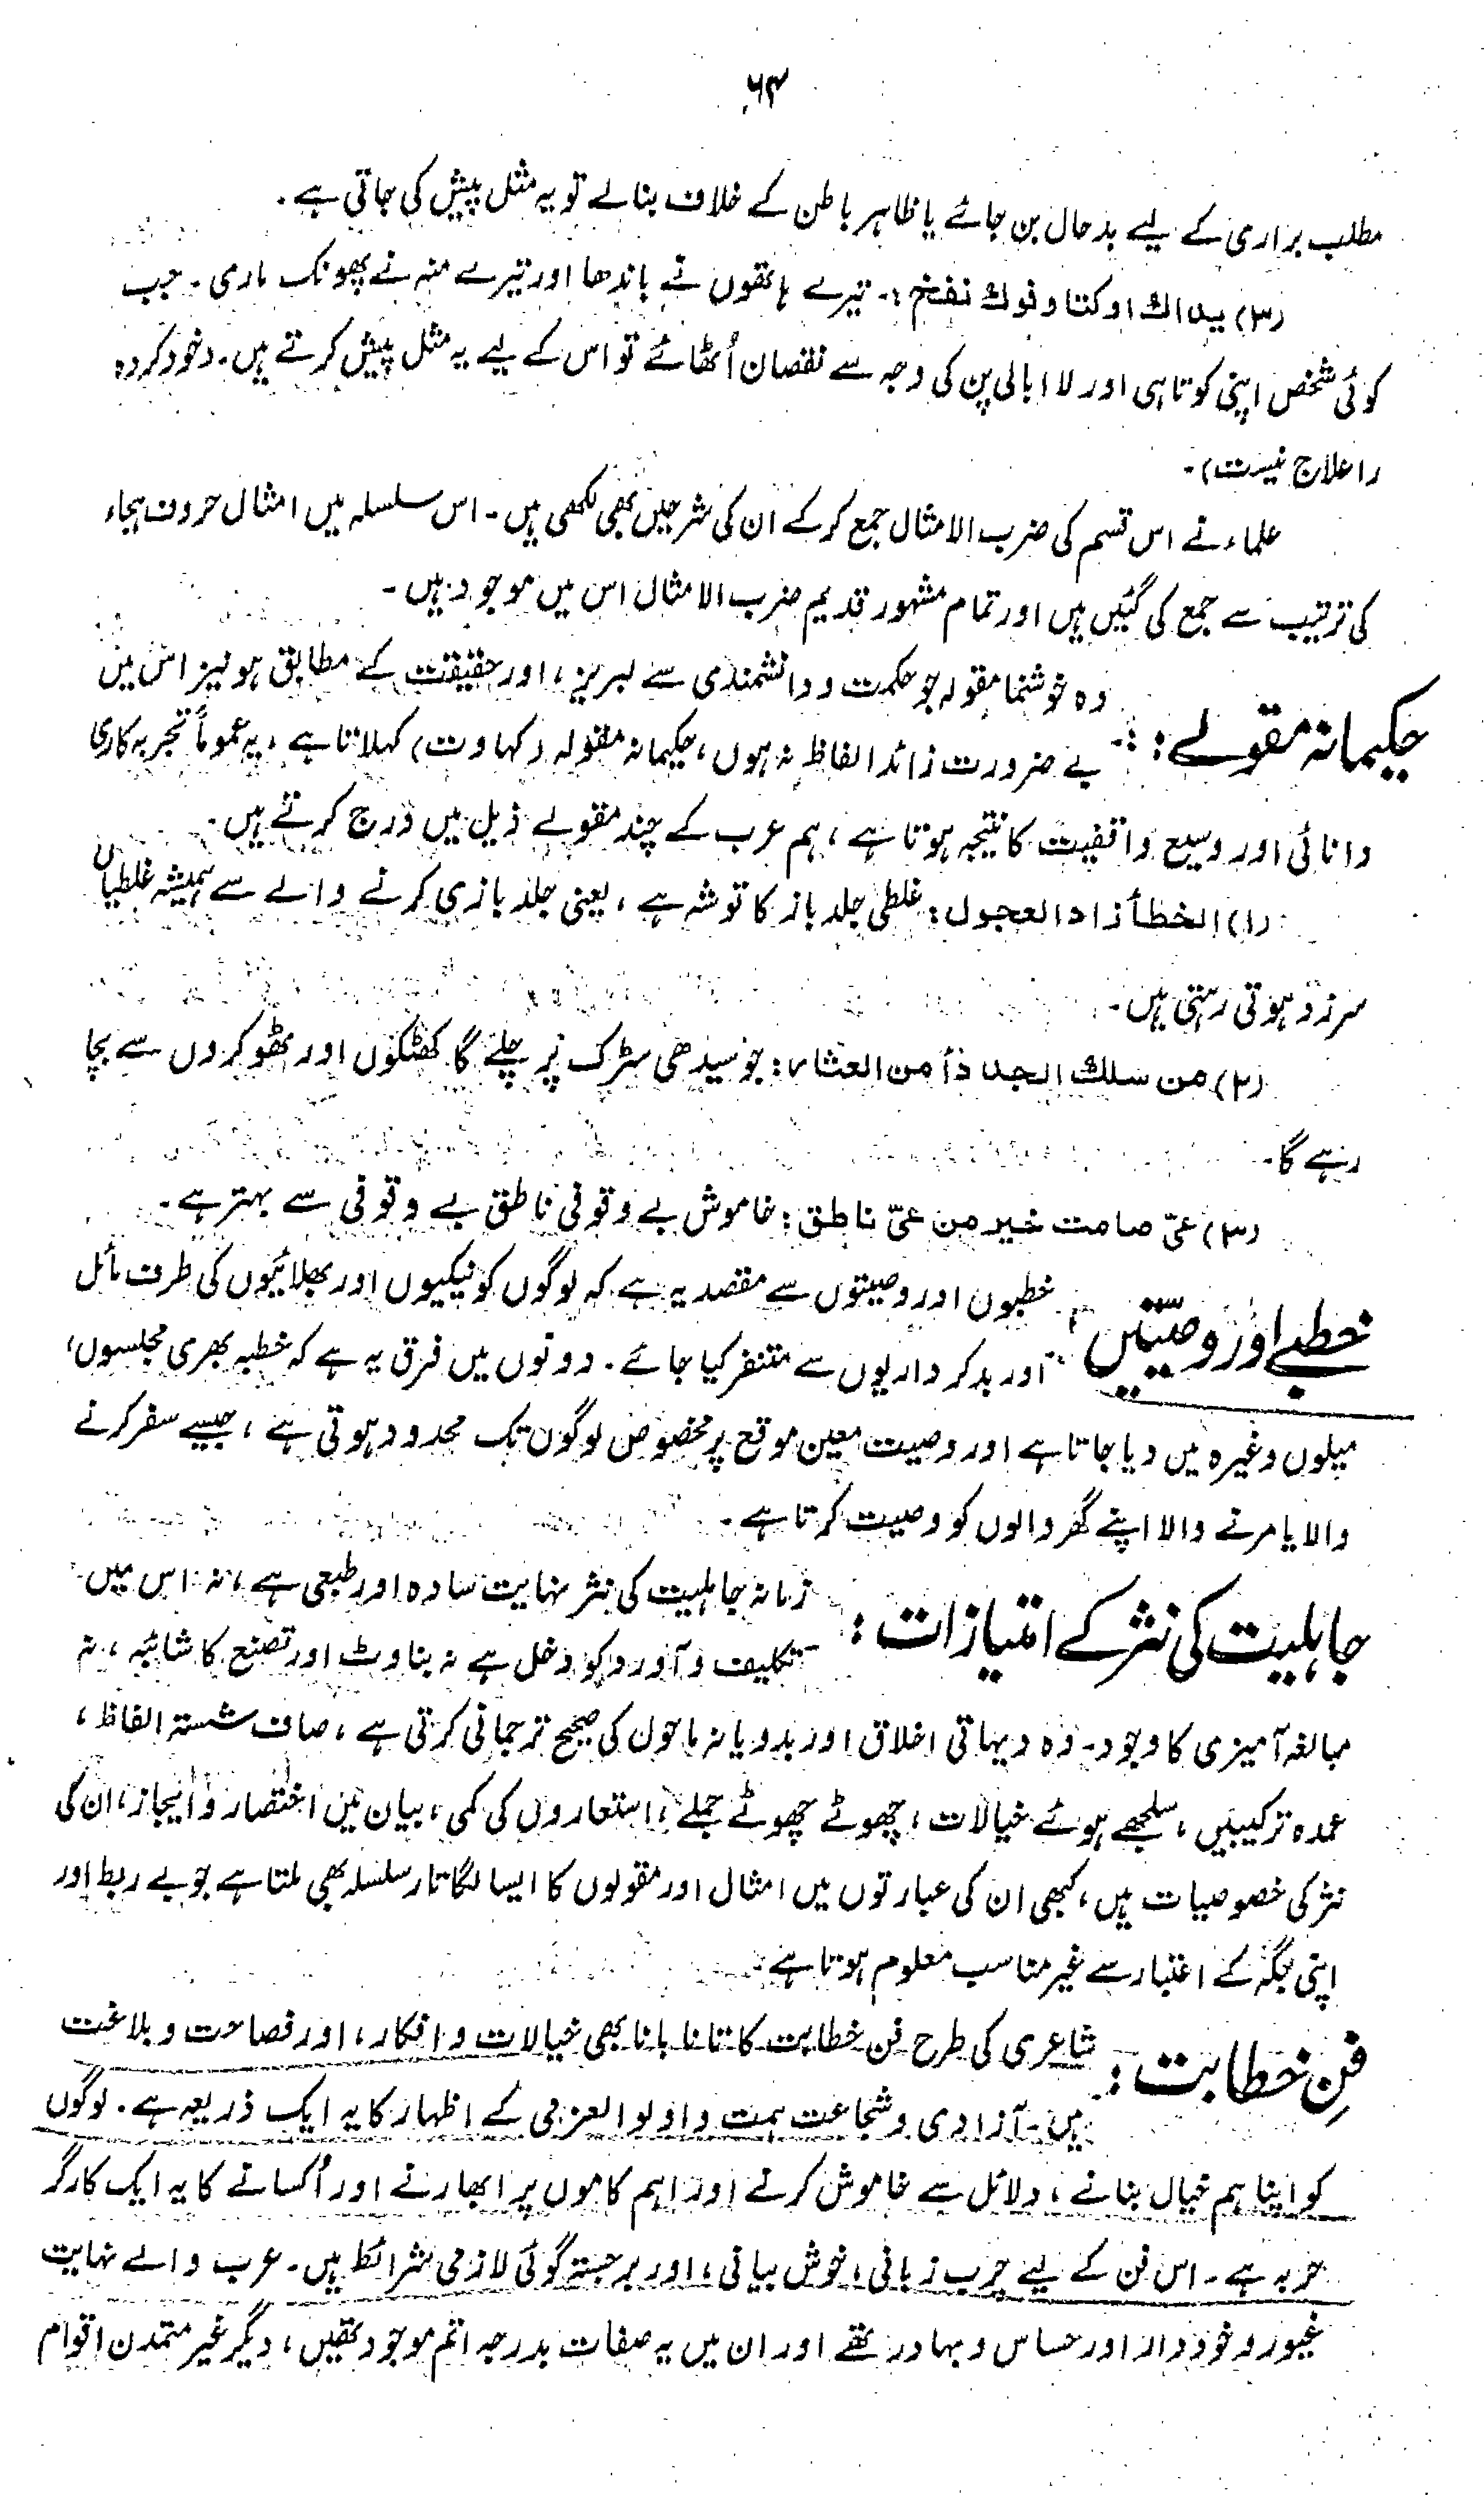 ۶۴
مطلب براری کے لیے بدحال بن جائے یا ظاہر باطن کے خلاف بنالے تو یہ مثل پیش کی جاتی ہے۔
(۳) يداك اوكتا وفوك نفخ :- تیرے ہاتھوں نے باندھا اور تیرے منہ نے پھونک ماری۔ جب
کوئی شخص اپنی کوتاہی اور لا ابالی پن کی وجہ سے نقصان اُٹھائے تو اس کے لیے یہ مثل پیش کرتے ہیں۔ (خود کردہ
را علاج نیست)۔
علماء نے اس قسم کی ضرب الامثال جمع کر کے ان کی شرحیں بھی لکھی ہیں۔ اس سلسلہ میں امثال حروف ہجاء
کی ترتیب سے جمع کی گئیں ہیں اور تمام مشہور قدیم ضرب الامثال اس میں موجود ہیں۔
حکیمانہ مقولے :- وہ خوشنما مقولہ جو حکمت و دانشمندی سے لبریز، اور حقیقت کے مطابق ہو نیز اس میں
بے ضرورت زائد الفاظ نہ ہوں، حکیمانہ مقولہ (کہاوت) کہلاتا ہے، یہ عموماً تجربہ کاری
دانائی اور وسیع واقفیت کا نتیجہ ہوتا ہے، ہم عرب کے چند مقولے ذیل میں درج کرتے ہیں۔
(۱) الخطأ زاد العجول : غلطی جلد باز کا توشہ ہے، یعنی جلد بازی کرنے والے سے ہمیشہ غلطیاں
سرزد ہوتی رہتی ہیں۔
(۲) من سلك الجدد أمن العثار : جو سیدھی سڑک پر چلے گا کھٹکوں اور ٹھوکروں سے بچا
رہے گا۔
(۳) عيّ صامت خير من عيّ ناطق : خاموش بے وقوفی ناطق بے وقوفی سے بہتر ہے۔
خطبے اور وصیّتیں : خطبوں اور وصیتوں سے مقصد یہ ہے کہ لوگوں کو نیکیوں اور بھلائیوں کی طرف مائل
اور بدکرداریوں سے متنفر کیا جائے۔ دونوں میں فرق یہ ہے کہ خطبہ بھری مجلسوں،
میلوں وغیرہ میں دیا جاتا ہے اور وصیت معین موقع پر مخصوص لوگوں تک محدود ہوتی ہے، جیسے سفر کرنے
والا یا مرنے والا اپنے گھر والوں کو وصیت کرتا ہے۔
جاہلیت کی نثر کے امتیازات : زمانہ جاہلیت کی نثر نہایت سادہ اور طبعی ہے، نہ اس میں
تکلیف و آورد کو دخل ہے نہ بناوٹ اور تصنع کا شائبہ، نہ
مبالغہ آمیزی کا وجود۔ وہ دیہاتی اخلاق اور بدویانہ ماحول کی صحیح ترجمانی کرتی ہے، صاف شستہ الفاظ،
عمدہ ترکیبیں، سلجھے ہوئے خیالات، چھوٹے چھوٹے جملے، استعاروں کی کمی، بیان میں اختصار و ایجاز، ان کی
نثر کی خصوصیات ہیں، کبھی ان کی عبارتوں میں امثال اور مقولوں کا ایسا لگاتار سلسلہ بھی ملتا ہے جو بے ربط اور
اپنی جگہ کے اعتبار سے غیر مناسب معلوم ہوتا ہے۔
فنِ خطابت : شاعری کی طرح فن خطابت کا تانا بانا بھی خیالات و افکار، اور فصاحت و بلاغت
ہیں۔ آزادی و شجاعت ہمت و اولوالعزمی کے اظہار کا یہ ایک ذریعہ ہے۔ لوگوں
کو اپنا ہم خیال بنانے، دلائل سے خاموش کرنے اور اہم کاموں پر ابھارنے اور اُکسانے کا یہ ایک کارگر
حربہ ہے۔ اس فن کے لیے چرب زبانی، خوش بیانی، اور برجستہ گوئی لازمی شرائط ہیں۔ عرب والے نہایت
غیور و خوددار اور حساس و بہادر تھے اور ان میں یہ صفات بدرجہ اتم موجود تھیں، دیگر غیر متمدن اقوام